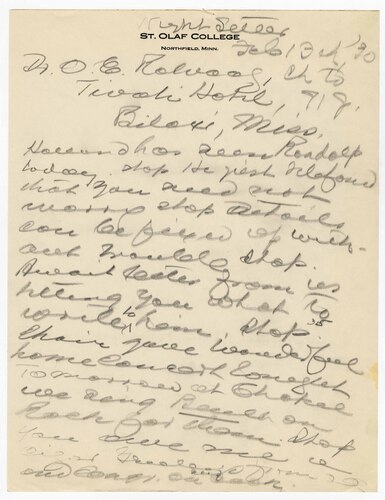 Night Letter
ST. OLAF COLLEGE
NORTHFIELD, MINN.
Feb 13th, '30
Dr. O E Rolvaag, Ch to
Tivoli Hotel,
Biloxi, Miss.
Holland has seen Randolp
today stop He just telefoned
that you need not
worry stop details
can be fixed up with-
out trouble stop
Await letter from
telling you what to
write to him stop
Choir gave wonderful
home concert tonight
Tomorrow at Chapel
we sang on
Rock for them stop
You owe me a